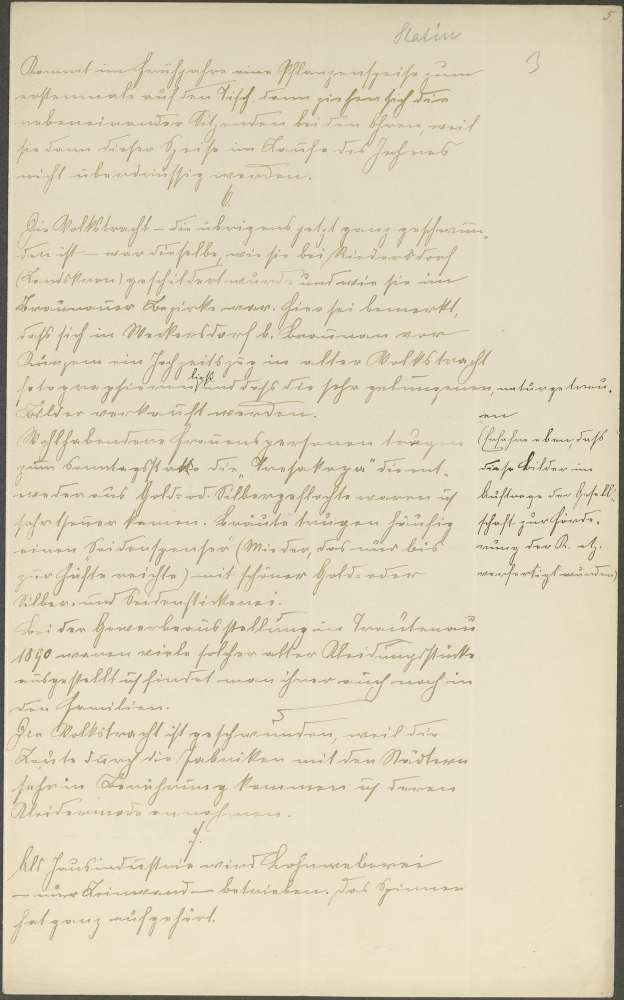 5.
Slatin
3
Kommt im Frühjahre eine Pflanzenspeise zum
erstenmale auf den Tisch, dann ziehen sich die
nebeneinander Sitzenden bei den Ohren, weil
sie dann dieser Speise im Laufe des Jahres
nicht überdrüssig werden.
6.
Die Volkstracht – die übrigens jetzt ganz geschwun-
den ist – war dieselbe, wie sie bei Rudersdorf
(Landskron) geschildert wurde und wie sie im
Braunauer Bezirke war. Hier sei bemerkt,
dass sich in Weckersdorf b. Braunau vor
Kurzem ein Hochzeitszug in alter Volkstracht
fotographieren ließ und dass die sehr gelungenen, naturgetreu-
en
Bilder verkauft werden.
(Erfahre eben, dass
diese Bilder im
Auftrage der Gesell-
schaft zur Förde-
rung der K. etz.
verfertigt wurden)
Wohlhabendere Frauenspersonen trugen
zum Sonntagsstaate die " die ent-
weder aus Gold- od. Silbergeflechte waren u.
sehr theuer kamen. Bräute trugen häufig
einen Seidenspenser (Mieder, das nur bis
zur Hüfte reichte) mit schöner Gold- oder
Silber- und Seidenstickerei.
Bei der Gewerbeausstellung in Trautenau
1890 waren viele solcher alter Kleidungsstücke
ausgestellt u. findet man ihrer auch noch in
den Familien.
Die Volkstracht ist geschwunden, weil die
Leute durch die Fabriken mit den Städtern
sehr in Berührung kommen u. deren
Kleidermode annahmen.
7.
Als Hausindustrie wird Lohnweberei
– nur Leinwand – betrieben. Das Spinnen
hat ganz aufgehört.